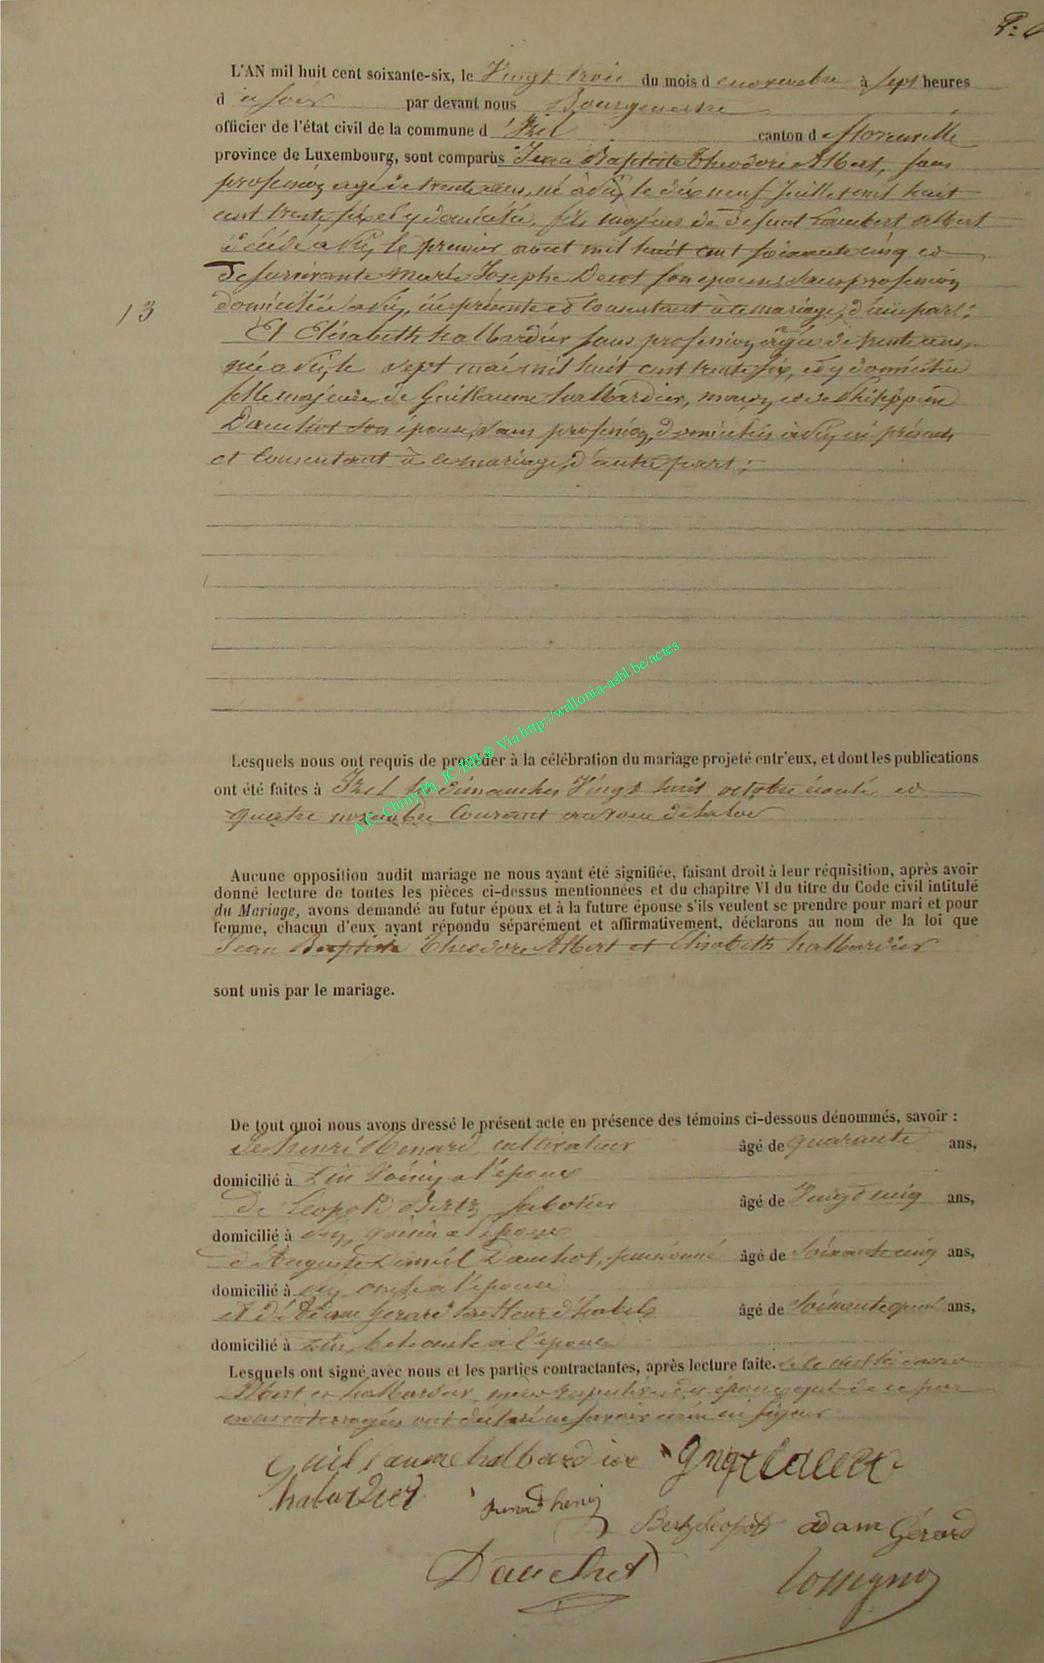 L'AN mil huit cent soixante-six, le Vingt trois du mois de novembre à sept heures
du soir par devant nous Bourgmestre
officier de l'état civil de la commune d'Izel canton de florenville
province de Luxembourg, sont comparus Jean Baptiste Theodore Albert, sans
profession agé de trente ans, né à le dix neuf Juillet mil huit
cent trente six et y domicilié, fils majeur de defunt Lambert albert
décédé a le premier aout mil huit cent soixante cinq et
de survivante Marie Josephe son epouse, sans profession
domiciliée a ici présente et consentant à ce mariage, d'une part;
13
Et Elisabeth halbardier sans profession agée de trente ans,
née a le sept mai mil huit cent trente six, et y domiciliée
fille majeure de Guillaume halbardier, et de Philippine
Dauchot son épouse, sans profession, domiciliés à ici présents
et consentant à ce mariage, d'autre part;
Lesquels nous ont requis de procéder à la célébration du mariage projeté entr'eux, et dont les publications
ont été faites à Izel les dimanches Vingt huit octobre écoulé et
quatre novembre Courant au voeu de la loi
A.C. Chiny Ph. JC/HB® Via http://wallonia-asbl.be/actes
Aucune opposition audit mariage ne nous ayant été signifiée, faisant droit à leur réquisition, après avoir
donné lecture de toutes les pièces ci-dessus mentionnées et du chapitre VI du titre du Code civil intitulé
du Mariage, avons demandé au futur époux et à la future épouse s'ils veulent se prendre pour mari et pour
femme, chacun d'eux ayant répondu séparément et affirmativement, déclarons au nom de la loi que
Jean Baptiste Theodore Albert et Elisabeth halbardier
sont unis par le mariage.
De tout quoi nous avons dressé le présent acte en présence des témoins ci-dessous dénommés, savoir :
De henri cultivateur âgé de quarante ans,
domicilié à voisin a l'époux
De Léopold Bertz, sabotier âgé de Vingt cinq ans,
domicilié à voisin a l'époux
d'Auguste Dauchot, pensionné âgé de Soixante cinq ans,
domicilié à oncle a l'épouse
et d'Adam Gerard tailleur d'habits âgé de Soixante ans,
domicilié à a l'épouse
Lesquels ont signé avec nous et les parties contractantes, après lecture faite.
Albert et halbardier, mères des époux qui de ce par
nous interrogées ont déclaré ne savoir ni signer
Guillaume halbardier
halbardier henri Bertz Léopold adam Gérard
Dauchot